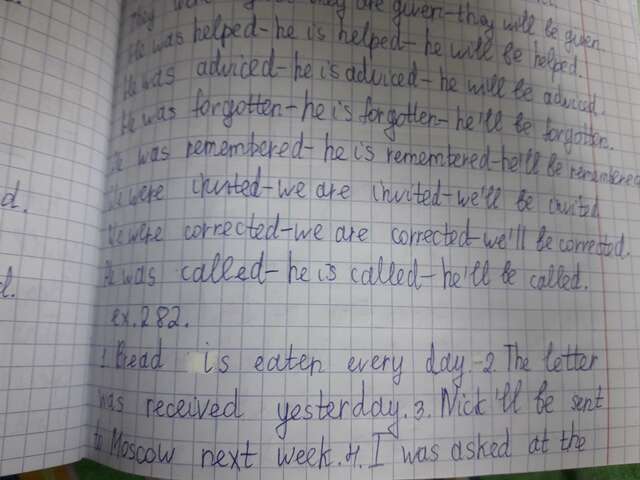 they are given-they will be given.
He was helped-he is helped-he will be helped.
He was adviced-he is adviced-he will be adviced.
He was forgotten-he is forgotten-he'll be forgotten.
He was remembered-he is remembered-he'll be remembered
We were invited-we are invited-we'll be invited
We were corrected-we are corrected-we'll be corrected.
He was called-he is called-he'll be called.
ex.282.
1 Bread is eaten every day.-2. The letter
was received yesterday.3. Nick'll be sent
to Moscow next week.4. I was asked at the
d.
l.